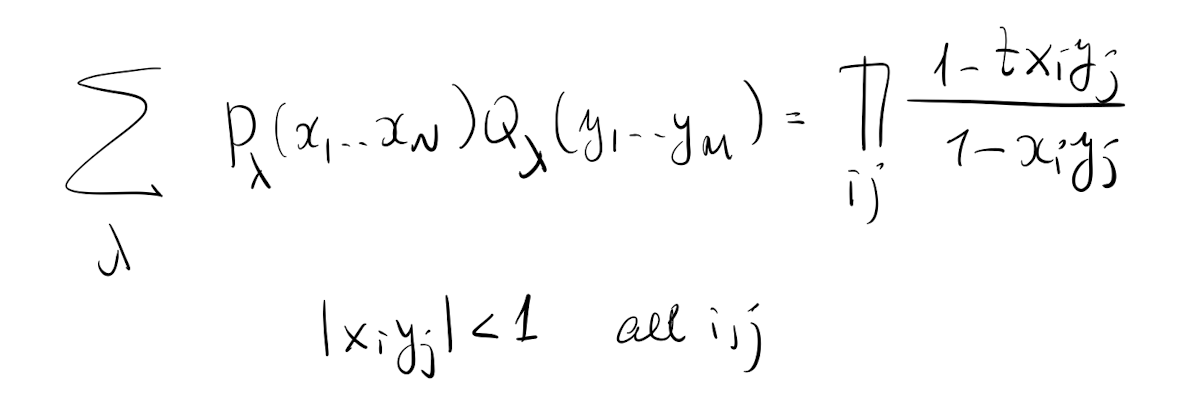 ∑_λ P_λ(x_1...x_N) Q_λ(y_1...y_M) = ∏_{ij} (1 - t x_i y_j)/(1 - x_i y_j)
|x_i y_j| < 1 all i,j